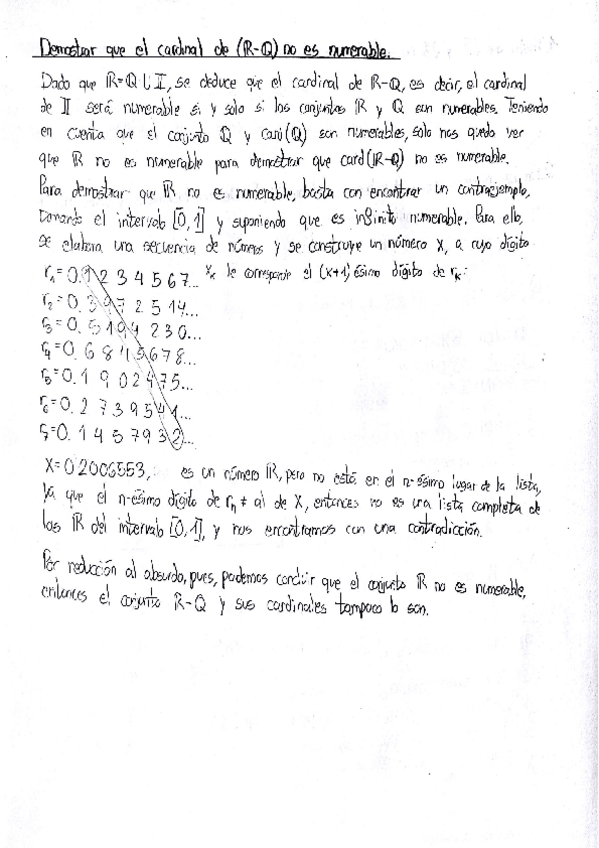 Demostrar que el cardinal de (R-Q) no es numerable.
Dado que R=Q∪I, se deduce que el cardinal de R-Q, es decir, el cardinal
de I será numerable si y sólo si los conjuntos R y Q son numerables. Teniendo
en cuenta que el conjunto Q y card(Q) son numerables, sólo nos queda ver
que R no es numerable para demostrar que card(R-Q) no es numerable.
Para demostrar que R no es numerable, basta con encontrar un contraejemplo,
tomando el intervalo [0,1] y suponiendo que es infinito numerable. Para ello,
se elabora una secuencia de números y se construye un número X, a cuyo dígito
r₁=0.1 2 3 4 5 6 7... xₖ le corresponde el (x+1)ésimo dígito de rₖ:
r₂=0.3 9 7 2 5 1 4...
r₃=0.5 1 9 4 2 3 0...
r₄=0.6 8 4 5 6 7 8...
r₅=0.1 9 0 2 4 7 5...
r₆=0.2 7 3 9 5 4 1...
r₇=0.1 4 5 7 9 3 2...
X=0.2006553, es un número R, pero no está en el n-ésimo lugar de la lista,
ya que el n-ésimo dígito de rₙ ≠ al de X, entonces no es una lista completa de
los R del intervalo [0,1], y nos encontramos con una contradicción.
Por reducción al absurdo, pues, podemos concluir que el conjunto R no es numerable,
entonces el conjunto R-Q y sus cardinales tampoco lo son.